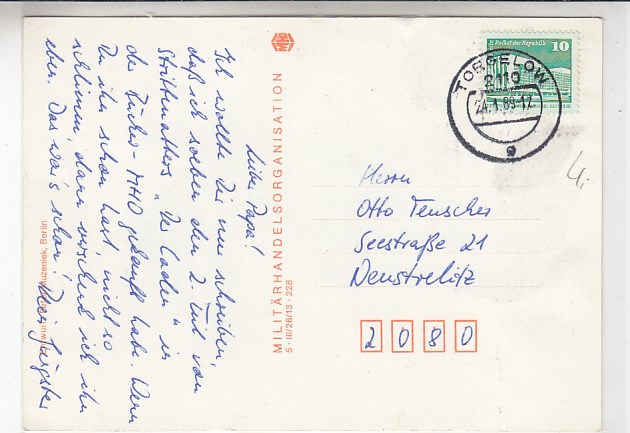 Lieber Papa!
Ich wollte Dir nur schreiben,
daß ich soeben den 2. Teil von
Strittmatters "Der Laden" in
der Bücher-MHO gekauft habe. Wenn
Du ihn schon hast, nicht so
schlimm, dann verschenk ich ihn
eben. Das war's schon! Dein Jüngster
Berlin
MHO
MILITÄRHANDELSORGANISATION
5·III/26/13·228
Palast der Republik
10
TORGELOW
2110
24.1.89-12
a
4,-
Herrn
Otto Teusches
Seestraße 21
Neustrelitz
2080